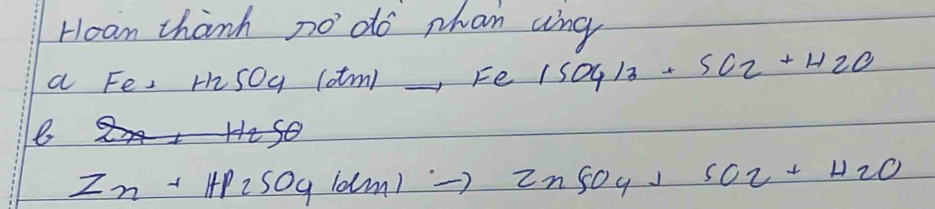 Hoàn thành sơ đồ phản ứng
a Fe + H2SO4 (đm) → Fe (SO4)3 + SO2 + H2O
b Zn + H2SO
Zn + H2SO4 (đm) → ZnSO4 + SO2 + H2O